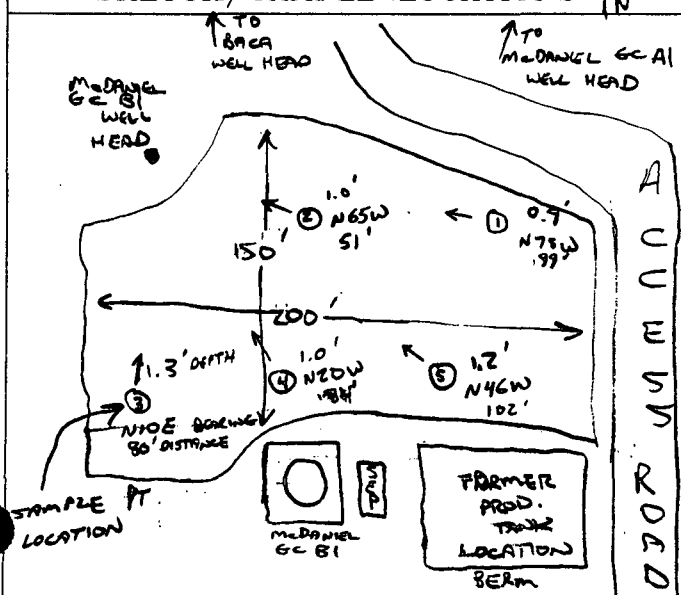 N
TO
BACA
WELL HEAD
TO
McDANIEL GC A1
WELL HEAD
McDANIEL
GC B1
WELL
HEAD
1.0'
② N65W
51'
① 0.9'
N75W
99'
150'
200'
1.3' DEPTH
③
N10E BEARING
80' DISTANCE
1.0'
④ N20W
⑤ 1.2'
N46W
102'
SAMPLE PT
LOCATION
McDANIEL
GC B1
SEP
FORMER
PROD.
TANK
LOCATION
BERM
ACCESS ROAD